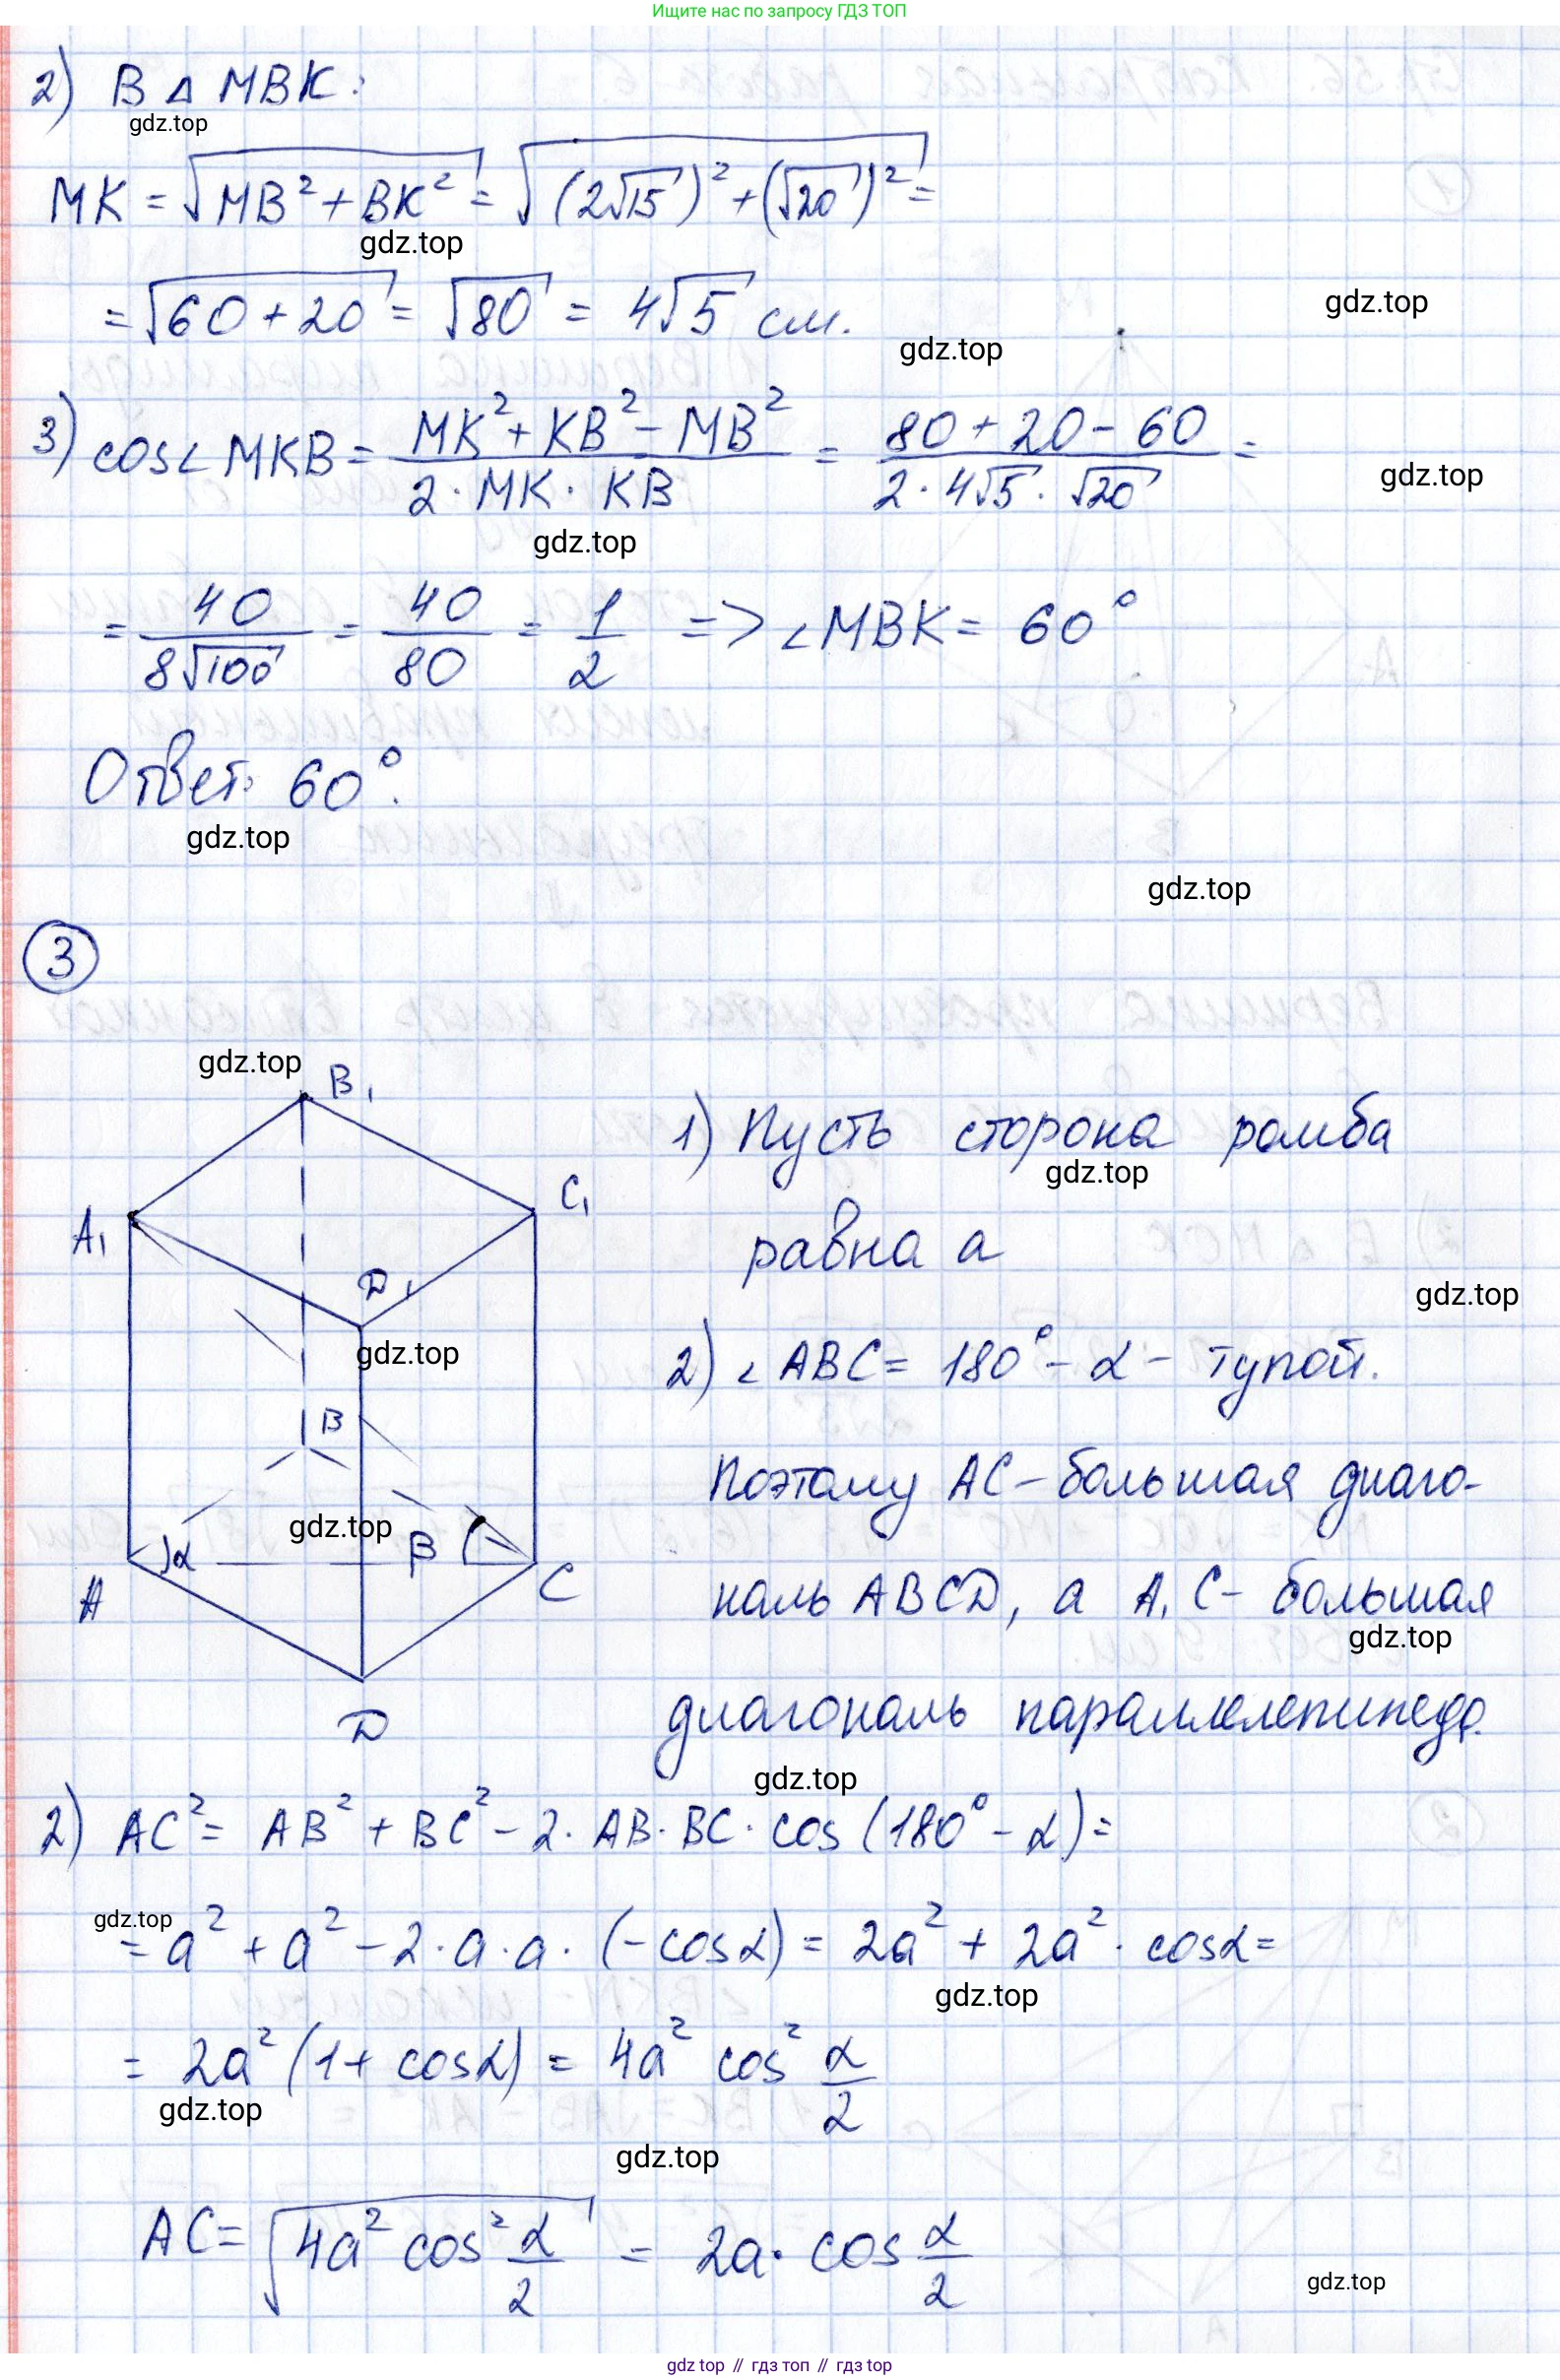 Ищите нас по запросу ГДЗ ТОП
2) В △ MBK:
gdz.top
MK = √(MB² + BK²) = √((2√15)² + (√20)²) =
gdz.top
= √(60 + 20) = √80 = 4√5 см.
gdz.top
gdz.top
3) cos∠MKB = (MK² + KB² − MB²)/(2 · MK · KB) = (80 + 20 − 60)/(2 · 4√5 · √20) =
gdz.top
gdz.top
= 40/(8√100) = 40/80 = 1/2 => ∠MBK = 60°
Ответ: 60°.
gdz.top
gdz.top
3
gdz.top
B₁
A₁
C₁
D₁
gdz.top
B
gdz.top
α
β
A
C
D
1) Пусть сторона ромба
gdz.top
равна a
gdz.top
2) ∠ABC = 180° − α − тупой.
Поэтому AC − большая диаго-
наль ABCD, а A₁C − большая
gdz.top
диагональ параллелепипеда.
gdz.top
2) AC² = AB² + BC² − 2 · AB · BC · cos(180° − α) =
gdz.top
= a² + a² − 2 · a · a · (−cosα) = 2a² + 2a² · cosα =
gdz.top
= 2a²(1 + cosα) = 4a² cos² α/2
gdz.top
gdz.top
AC = √(4a² cos² α/2) = 2a · cos α/2
gdz.top
gdz top // гдз топ // gdz top